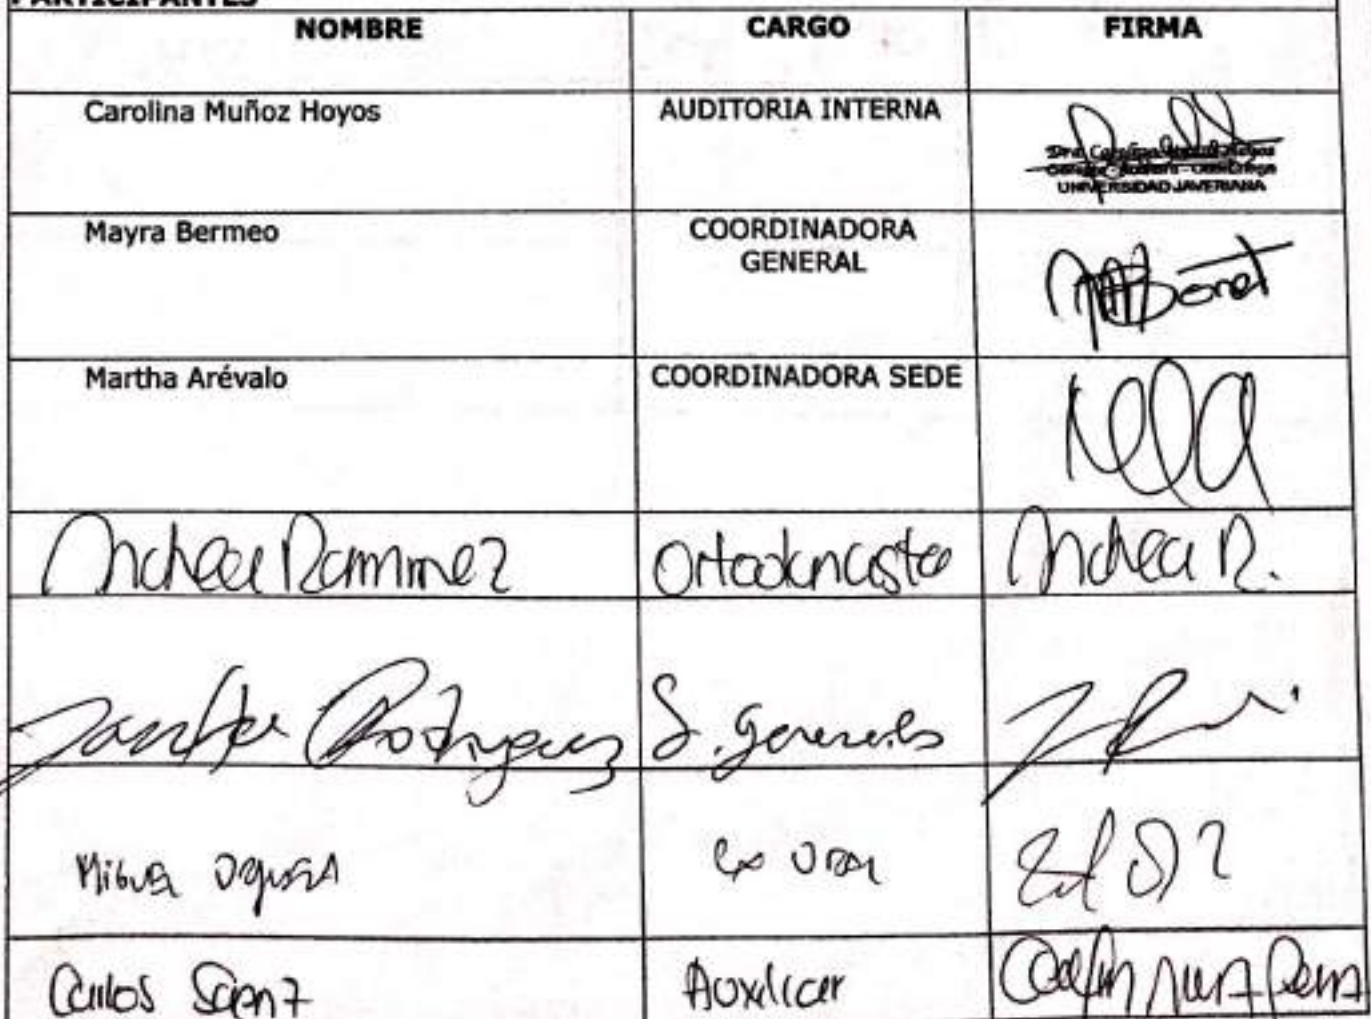 PARTICIPANTES
NOMBRE CARGO FIRMA
Carolina Muñoz Hoyos AUDITORIA INTERNA
UNIVERSIDAD JAVERIANA
Mayra Bermeo COORDINADORA
GENERAL
Martha Arévalo COORDINADORA SEDE
Andrea Ramirez Ortodoncista Andrea R.
Rodriguez S. generales
Carlos Sáenz Auxiliar